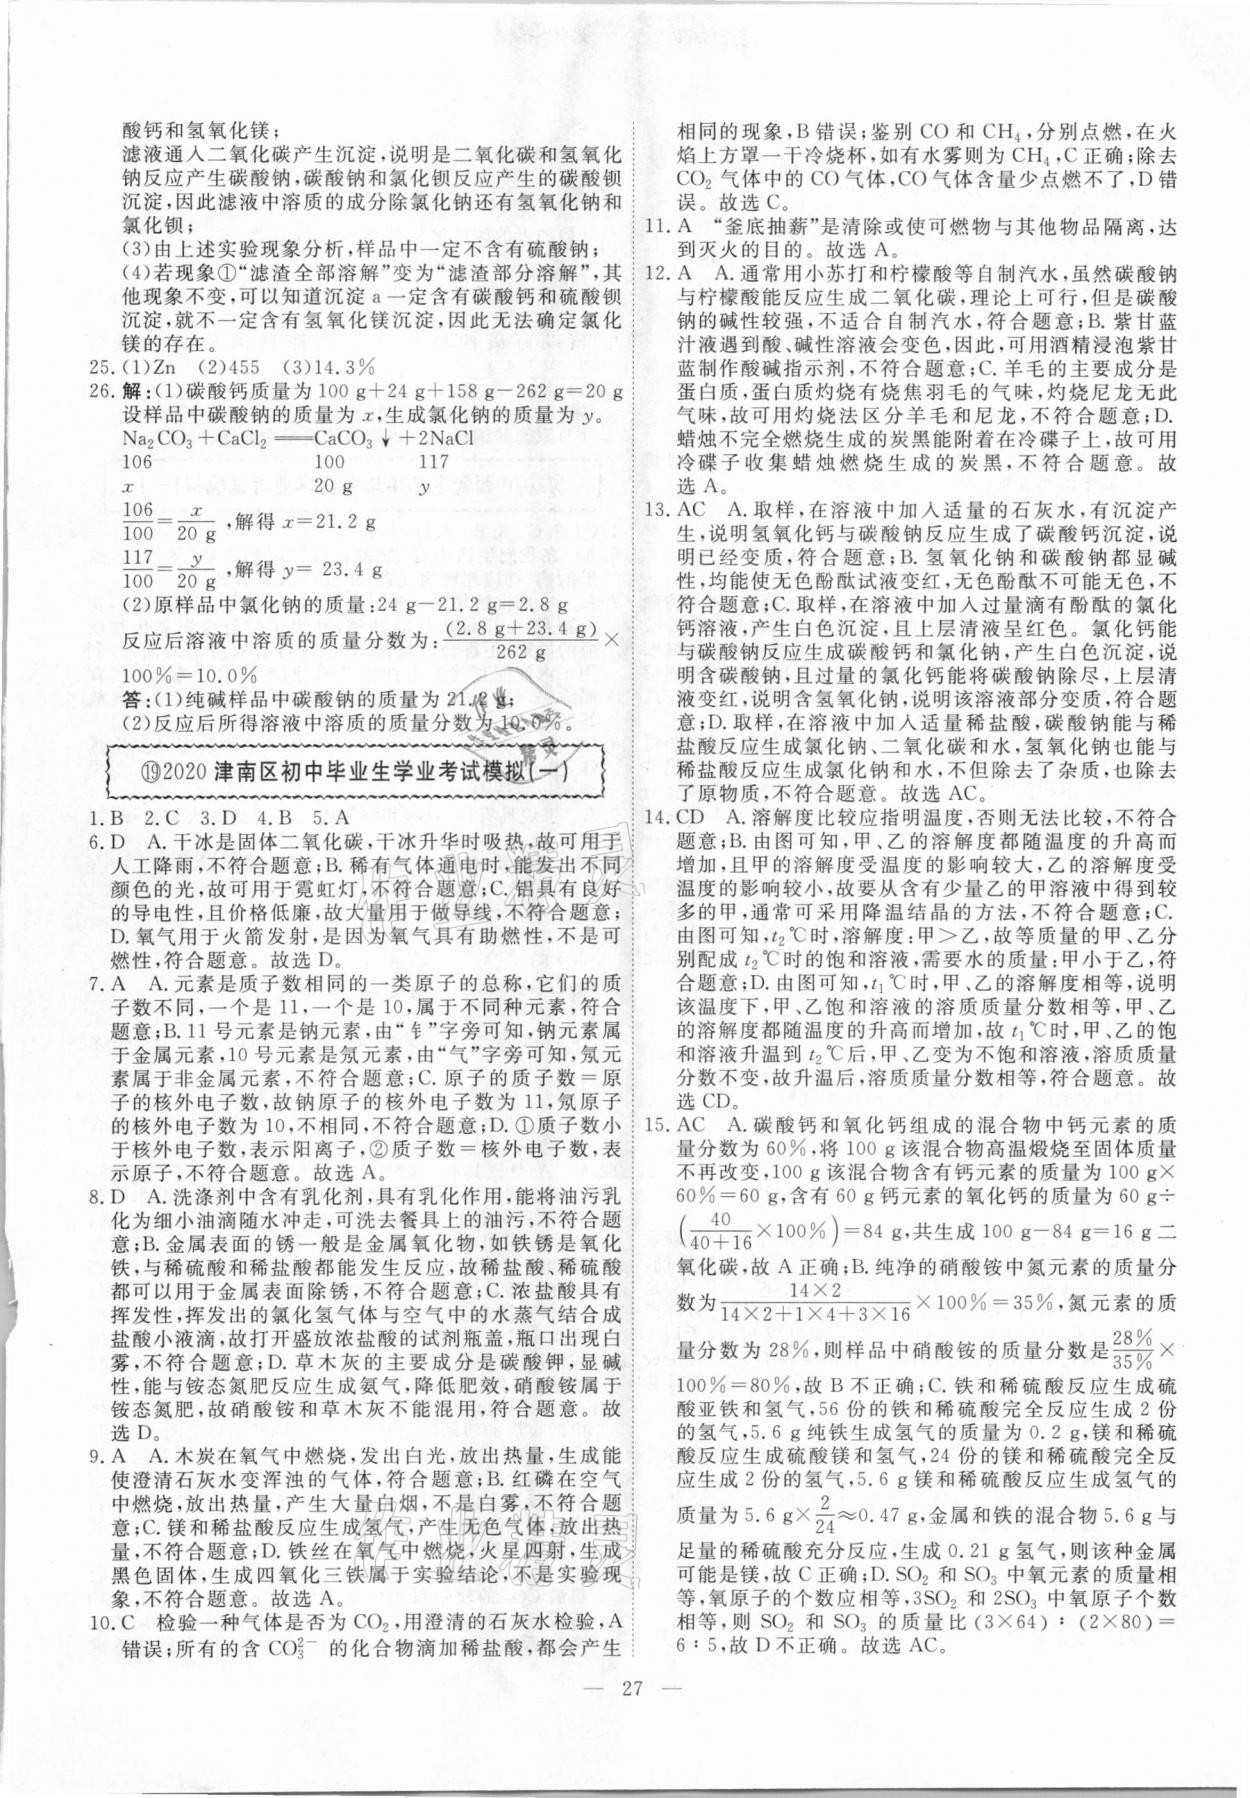 酸钙和氢氧化镁;
滤液通入二氧化碳产生沉淀,说明是二氧化碳和氢氧化
钠反应产生碳酸钠,碳酸钠和氯化钡反应产生的碳酸钡
沉淀,因此滤液中溶质的成分除氯化钠还有氢氧化钠和
氯化钡;
(3)由上述实验现象分析,样品中一定不含有硫酸钠;
(4)若现象①“滤渣全部溶解”变为“滤渣部分溶解”,其
他现象不变,可以知道沉淀 a 一定含有碳酸钙和硫酸钡
沉淀,就不一定含有氢氧化镁沉淀,因此无法确定氯化
镁的存在。
25. (1)Zn (2)455 (3)14.3%
26. 解:(1)碳酸钙质量为 100 g+24 g+158 g-262 g=20 g
设样品中碳酸钠的质量为 x,生成氯化钠的质量为 y。
Na₂CO₃+CaCl₂══CaCO₃↓+2NaCl
106 100 117
x 20 g y
106/100=x/20 g,解得 x=21.2 g
117/100=y/20 g,解得 y= 23.4 g
(2)原样品中氯化钠的质量:24 g-21.2 g=2.8 g
反应后溶液中溶质的质量分数为:(2.8 g+23.4 g)/262 g×
100%=10.0%
答:(1)纯碱样品中碳酸钠的质量为 21.2 g;
(2)反应后所得溶液中溶质的质量分数为 10.0%。
⑲2020 津南区初中毕业生学业考试模拟(一)
1. B 2. C 3. D 4. B 5. A
6. D A. 干冰是固体二氧化碳,干冰升华时吸热,故可用于
人工降雨,不符合题意;B. 稀有气体通电时,能发出不同
颜色的光,故可用于霓虹灯,不符合题意;C. 铝具有良好
的导电性,且价格低廉,故大量用于做导线,不符合题意;
D. 氧气用于火箭发射,是因为氧气具有助燃性,不是可
燃性,符合题意。故选 D。
7. A A. 元素是质子数相同的一类原子的总称,它们的质
子数不同,一个是 11,一个是 10,属于不同种元素,符合
题意;B. 11 号元素是钠元素,由“钅”字旁可知,钠元素属
于金属元素,10 号元素是氖元素,由“气”字旁可知,氖元
素属于非金属元素,不符合题意;C. 原子的质子数=原子
的核外电子数,故钠原子的核外电子数为 11,氖原子
的核外电子数为 10,不相同,不符合题意;D. ①质子数小
于核外电子数,表示阳离子,②质子数=核外电子数,表
示原子,不符合题意。故选 A。
8. D A. 洗涤剂中含有乳化剂,具有乳化作用,能将油污乳
化为细小油滴随水冲走,可洗去餐具上的油污,不符合题
意;B. 金属表面的锈一般是金属氧化物,如铁锈是氧化
铁,与稀硫酸和稀盐酸都能发生反应,故稀盐酸、稀硫酸
都可以用于金属表面除锈,不符合题意;C. 浓盐酸具有
挥发性,挥发出的氯化氢气体与空气中的水蒸气结合成
盐酸小液滴,故打开盛放浓盐酸的试剂瓶盖,瓶口出现白
雾,不符合题意;D. 草木灰的主要成分是碳酸钾,显碱
性,能与铵态氮肥反应生成氨气,降低肥效,硝酸铵属于
铵态氮肥,故硝酸铵和草木灰不能混用,符合题意。故
选 D。
9. A A. 木炭在氧气中燃烧,发出白光,放出热量,生成能
使澄清石灰水变浑浊的气体,符合题意;B. 红磷在空气
中燃烧,放出热量,产生大量白烟,不是白雾,不符合题
意;C. 镁和稀盐酸反应生成氢气,产生无色气体,放出热
量,不符合题意;D. 铁丝在氧气中燃烧,火星四射,生成
黑色固体,生成四氧化三铁属于实验结论,不是实验现
象,不符合题意。故选 A。
10. C 检验一种气体是否为 CO₂,用澄清的石灰水检验,A
错误;所有的含 CO₃²⁻ 的化合物滴加稀盐酸,都会产生
相同的现象,B 错误;鉴别 CO 和 CH₄,分别点燃,在火
焰上方罩一干冷烧杯,如有水雾则为 CH₄,C 正确;除去
CO₂ 气体中的 CO 气体,CO 气体含量少点燃不了,D 错
误。故选 C。
11. A “釜底抽薪”是清除或使可燃物与其他物品隔离,达
到灭火的目的。故选 A。
12. A A. 通常用小苏打和柠檬酸等自制汽水,虽然碳酸钠
与柠檬酸能反应生成二氧化碳,理论上可行,但是碳酸
钠的碱性较强,不适合自制汽水,符合题意;B. 紫甘蓝
汁液遇到酸、碱性溶液会变色,因此,可用酒精浸泡紫甘
蓝制作酸碱指示剂,不符合题意;C. 羊毛的主要成分是
蛋白质,蛋白质灼烧有烧焦羽毛的气味,灼烧尼龙无此
气味,故可用灼烧法区分羊毛和尼龙,不符合题意;D.
蜡烛不完全燃烧生成的炭黑能附着在冷碟子上,故可用
冷碟子收集蜡烛燃烧生成的炭黑,不符合题意。故
选 A。
13. AC A. 取样,在溶液中加入适量的石灰水,有沉淀产
生,说明氢氧化钙与碳酸钠反应生成了碳酸钙沉淀,说
明已经变质,符合题意;B. 氢氧化钠和碳酸钠都显碱
性,均能使无色酚酞试液变红,无色酚酞不可能无色,不
符合题意;C. 取样,在溶液中加入过量滴有酚酞的氯化
钙溶液,产生白色沉淀,且上层清液呈红色。氯化钙能
与碳酸钠反应生成碳酸钙和氯化钠,产生白色沉淀,说
明含碳酸钠,且过量的氯化钙能将碳酸钠除尽,上层清
液变红,说明含氢氧化钠,说明该溶液部分变质,符合题
意;D. 取样,在溶液中加入适量稀盐酸,碳酸钠能与稀
盐酸反应生成氯化钠、二氧化碳和水,氢氧化钠也能与
稀盐酸反应生成氯化钠和水,虽然除去了杂质,也除去
了原物质,不符合题意。故选 AC。
14. CD A. 溶解度比较应指明温度,否则无法比较,不符合
题意;B. 由图可知,甲、乙的溶解度都随温度的升高而
增加,且甲的溶解度受温度的影响较大,乙的溶解度受
温度的影响较小,故要从含有少量乙的甲溶液中得到较多的
甲,通常可采用降温结晶的方法,不符合题意;C.
由图可知,t₂℃时,溶解度:甲>乙,故等质量的甲、乙分
别配成 t₂℃时的饱和溶液,需要水的质量:甲小于乙,符
合题意;D. 由图可知,t₁℃时,甲、乙的溶解度相等,说明
该温度下,甲、乙饱和溶液的溶质质量分数相等,甲、乙
的溶解度都随温度的升高而增加,故 t₁℃时,甲、乙的饱
和溶液升温到 t₂℃后,甲、乙变为不饱和溶液,溶质质量
分数不变,故升温后,溶质质量分数相等,符合题意。故
选 CD。
15. AC A. 碳酸钙和氧化钙组成的混合物中钙元素的质
量分数为 60%,将 100 g 该混合物高温煅烧至固体质量
不再改变,100 g 该混合物含有钙元素的质量为 100 g×
60%=60 g,含有 60 g 钙元素的氧化钙的质量为 60 g÷
(40/(40+16)×100%)=84 g,共生成 100 g-84 g=16 g 二
氧化碳,故 A 正确;B. 纯净的硝酸铵中氮元素的质量分
数为(14×2)/(14×2+1×4+3×16)×100%=35%,氮元素的质
量分数为 28%,则样品中硝酸铵的质量分数是28%/35%×
100%=80%,故 B 不正确;C. 铁和稀硫酸反应生成硫
酸亚铁和氢气,56 份的铁和稀硫酸完全反应生成 2 份
的氢气,5.6 g 纯铁生成氢气的质量为 0.2 g,镁和稀硫
酸反应生成硫酸镁和氢气,24 份的镁和稀硫酸完全反
应生成 2 份的氢气,5.6 g 镁和稀硫酸反应生成氢气的
质量为 5.6 g×2/24≈0.47 g,金属和铁的混合物 5.6 g 与
足量的稀硫酸充分反应,生成 0.21 g 氢气,则该种金属
可能是镁,故 C 正确;D. SO₂ 和 SO₃ 中氧元素的质量
相等,氧原子的个数应相等,3SO₂ 和 2SO₃ 中氧原子个数
相等,则 SO₂ 和 SO₃ 的质量比(3×64)∶(2×80)=
6∶5,故 D 不正确。故选 AC。
— 27 —